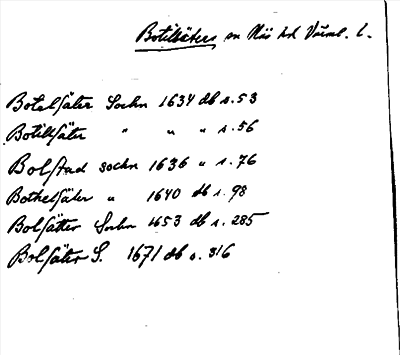 Botilsäters sn Näs hd Värml. l.
Botelsäter Sochn 1634 db s. 53
Botilsäter " " " s. 56
Bolstad sochn 1636 " s. 76
Bothelsäter " 1640 db s. 98
Bolsätter Sochn 1653 db s. 285
Bolsäter S. 1671 db s. 316